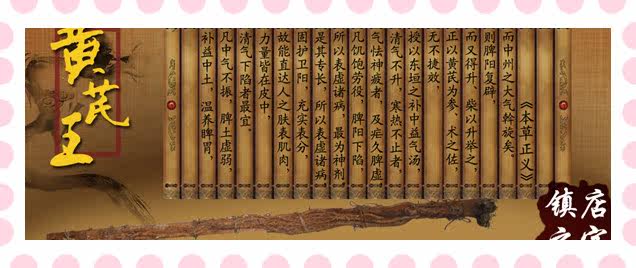 黄芪王
补益中土，温养脾胃，
凡中气不振，脾土虚弱，
清气下陷者最宜。
力量皆在皮中，
故能直达人之肤表肌肉，
固护卫阳，充实表分，
是其专长，所以表虚诸病
所以表虚诸病，最为神剂
凡饥饱劳役，脾阳下陷
气怯神疲者，及疟久脾虚
清气不升，寒热不止者，
授以东垣之补中益气汤，
无不捷效，
正以黄芪为参、术之佐，
而又得升、柴以升举之，
则脾阳复辟，
而中州之大气斡旋矣。
《本草正义》
镇店